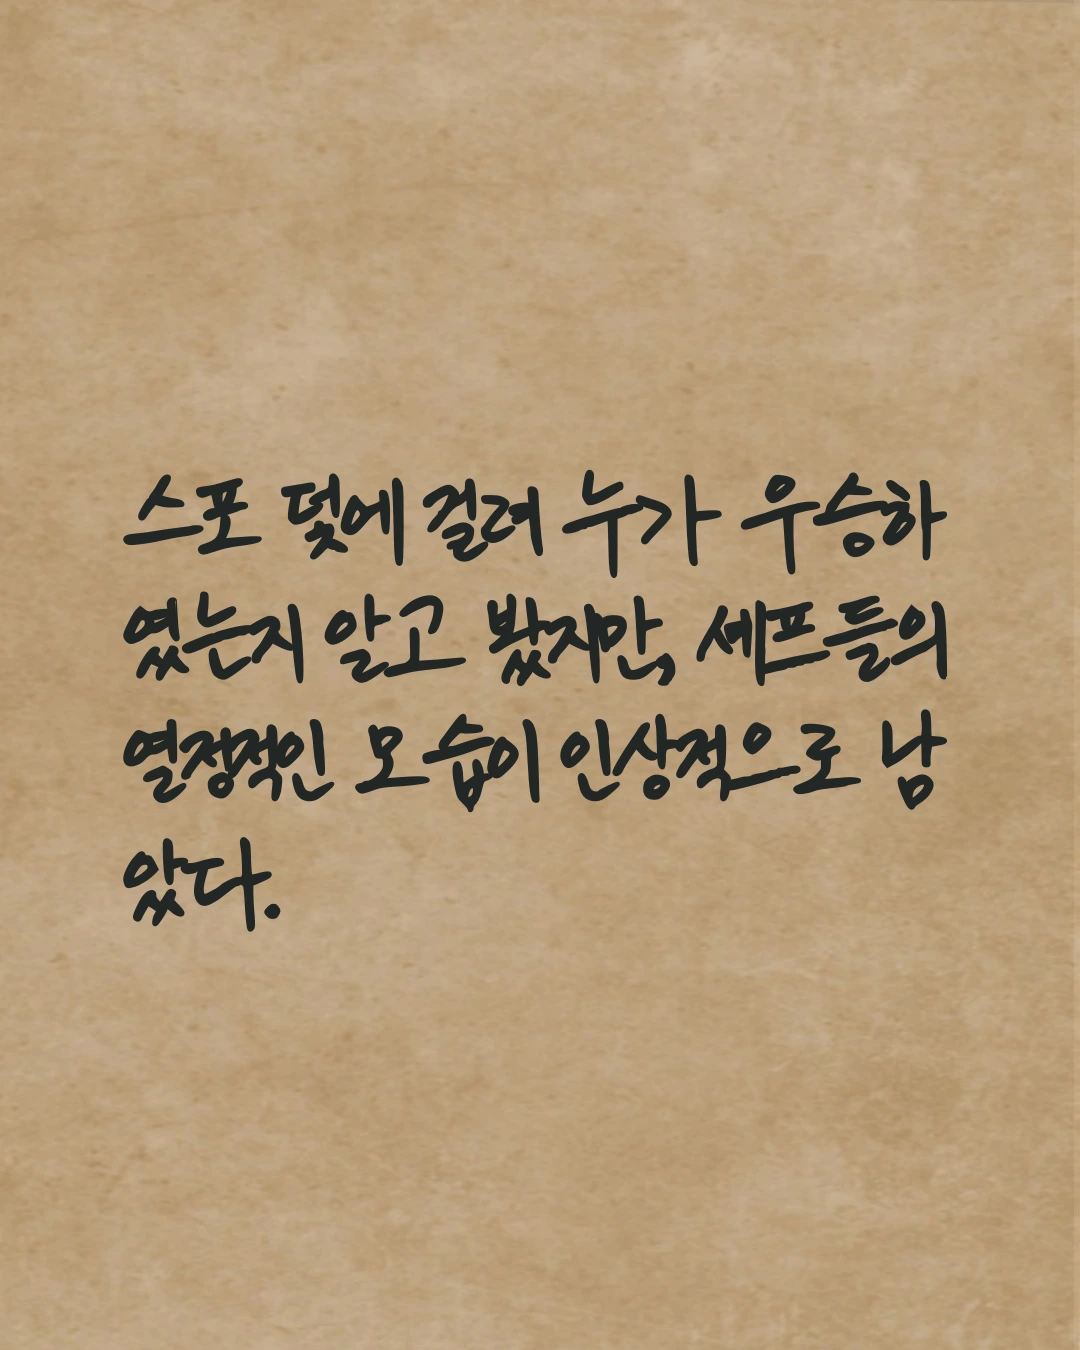 스포 덫에 걸려 누가 우승하
였는지 알고 봤지만, 셰프들의
열정적인 모습이 인상적으로 남
았다.